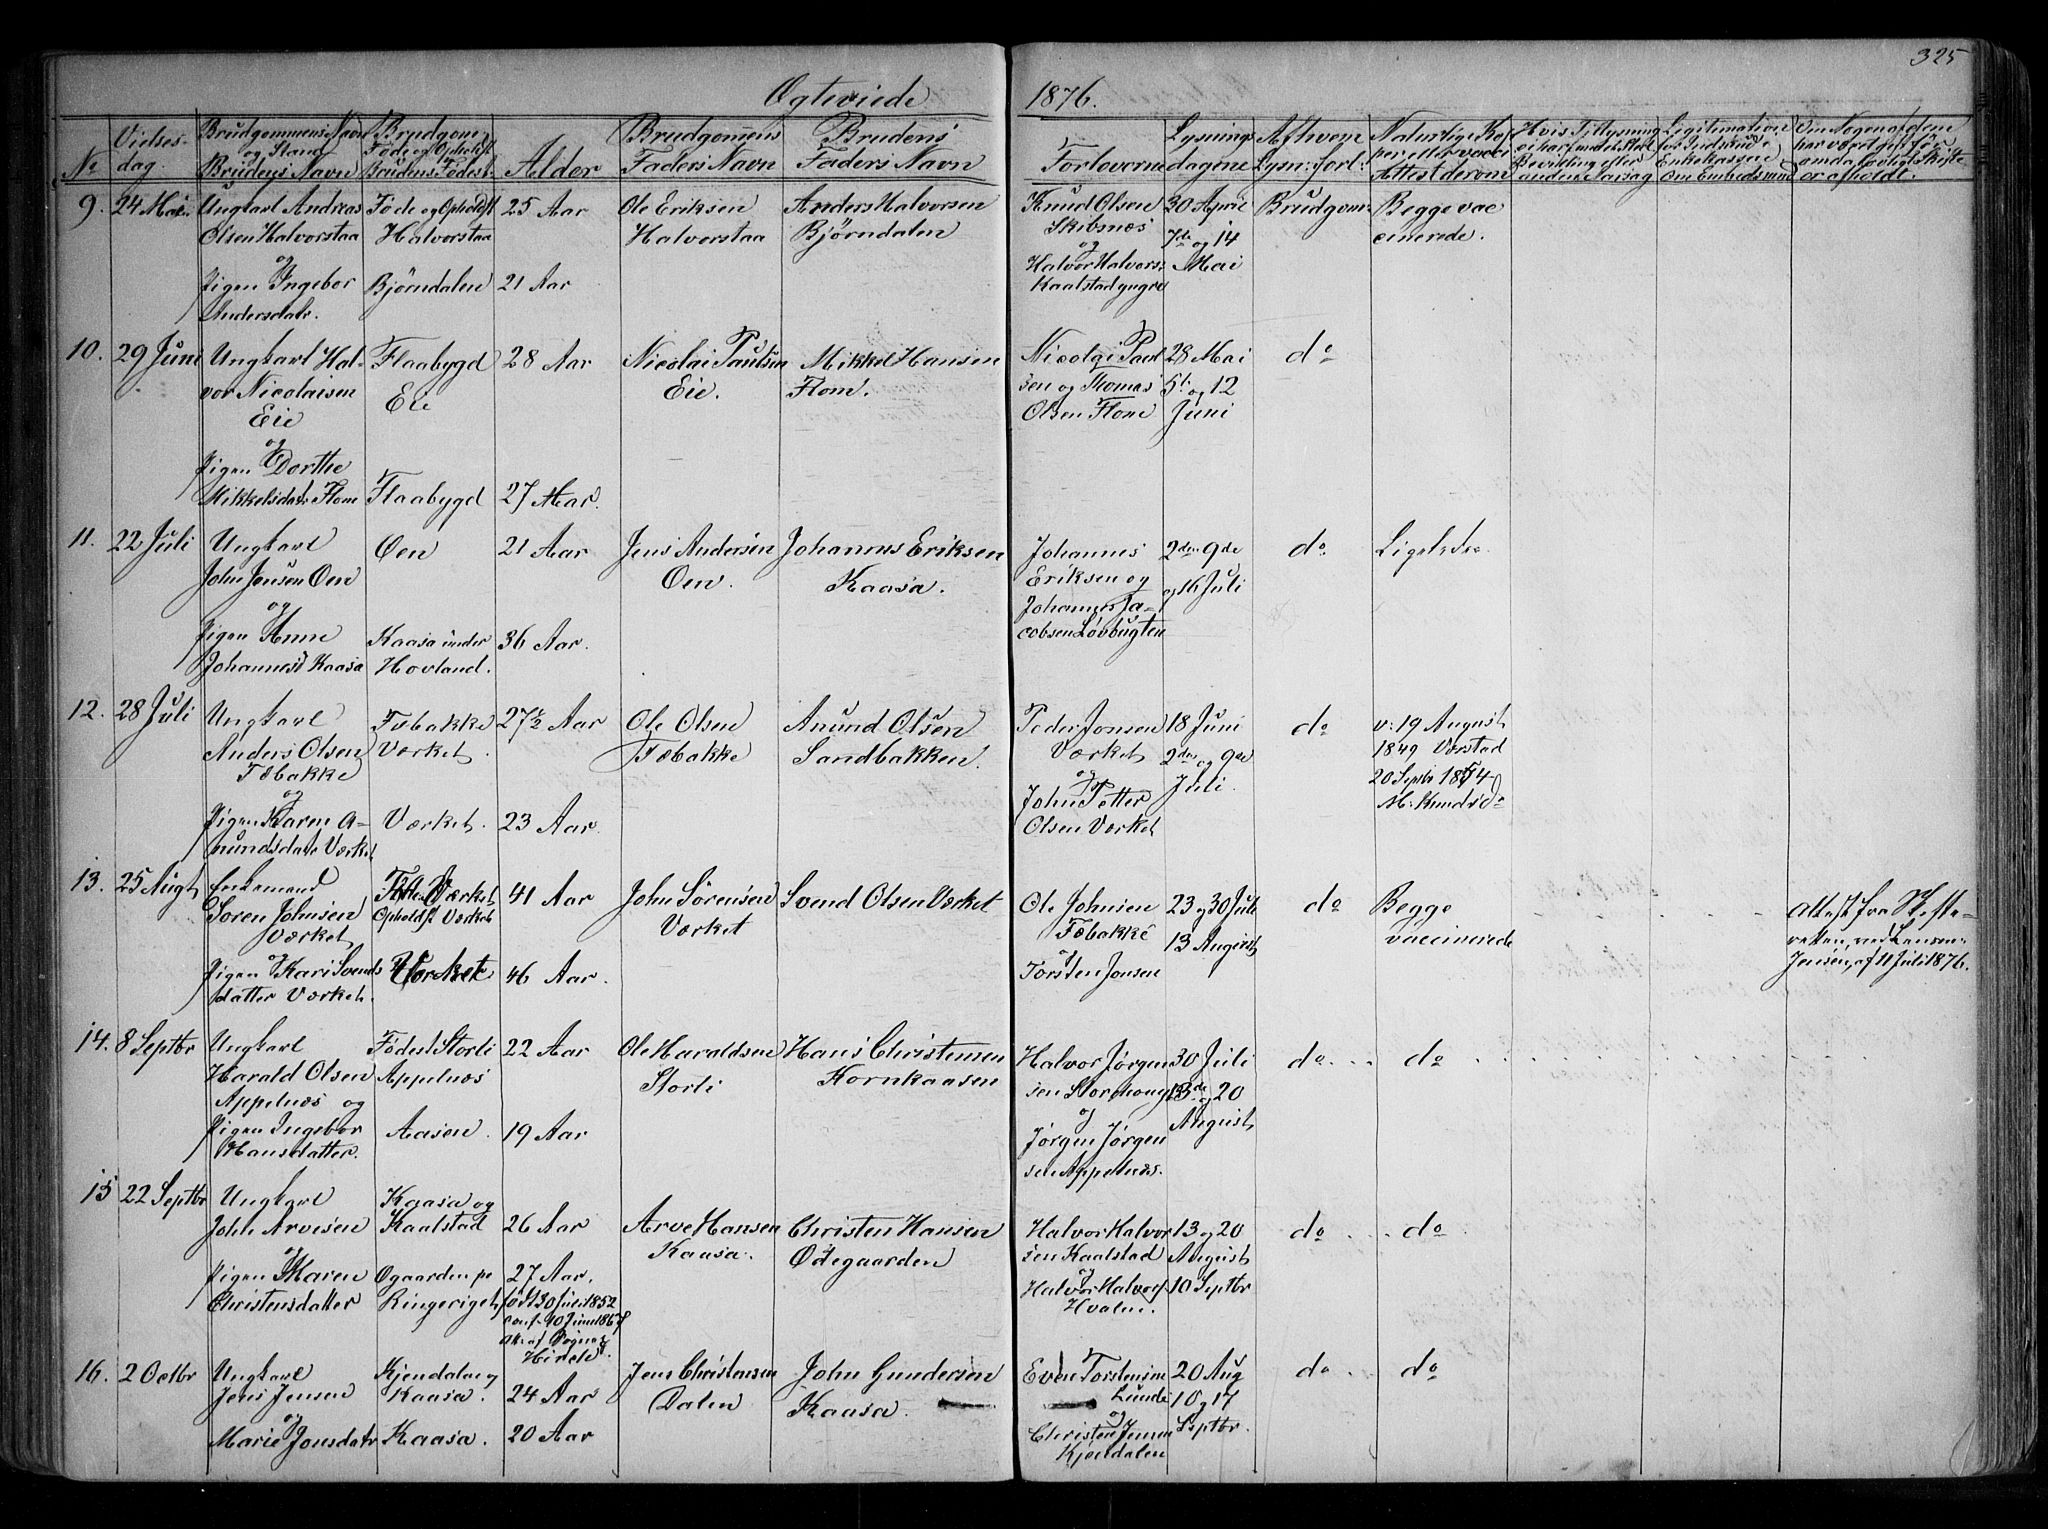 325
Ogteviede 1876.
No
Vielses-
dag.
Brudgommens Navn
og Stand
Brudens Navn
Brudgom:
Føde og Opholdst
Brudens Fødest.
Alder
Brudgomens
Faders Navn
Brudens
Faders Navn
Forloverne
Lysnings
dagene
Af hvem
Lysn: forl.
9. 24 Mai.
Ungkarl Andreas
Olsen Halvorstaa
og
Pigen Ingebor
Andersdatr.
Føde og Opholdst
Halvorstaa
Bjørndalen
25 Aar
21 Aar
Ole Eriksen
Halvorstaa
Anders Halvorsen
Bjørndalen
Knud Olsen
Skibsnæs
og
Halvor Halvors:
Kaalstad yngre
30 April
7de og 14
Mai
Brudgom:
Begge vac
cinerede.
10. 29 Juni
Ungkarl Hal-
vor Nicolaisen
Eie
og
Pigen Dorthe
Mikkelsdatr Flom
Flaabygd
Eie
Flaabygd
28 Aar
27 Aar.
Nicolai Paulsen
Eie.
Mikkel Hansen
Flom.
Nicolai Paul
sen og Thomas
Olsen Flom
28 Mai
5t og 12
Juni
do
11. 22 Juli
Ungkarl
John Jensen Oen
og
Pigen Anne
Johannesd Kaasa
Oen
Kaasa under
Hovland.
21 Aar
36 Aar.
Jens Andersen
Oen.
Johannes Eriksen
Kaasa.
Johannes
Eriksen og
Johannes Ja-
cobsen Løvbugten
2den 9de
og 16 Juli
do
Ligeledes.
12. 28 Juli
Ungkarl
Anders Olsen
Fæbakke
og
Pigen Karen A-
nundsdatr Værket
Fæbakke
Værket.
Værket.
27½ Aar
23 Aar.
Ole Olsen
Fæbakke
Anund Olsen
Sandbakken.
Peder Jonsen
Værket
og
John Petter
Olsen Værket
18 Juni
2den og 9de
Juli.
do
v: 19 August
1849 Værstad
20 Septbr 1854
M: Knudse
13. 25 Augt
Enkemand
Søren Johnsen
Værket
og
Pigen Kari Svends
datter Værket.
Værket
Opholdst Værket
Værket
41 Aar
46 Aar.
John Sørensen
Værket
Svend Olsen Værket
Ole Johnsen
Fæbakke
og
Torsten Jonsen
23 og 30 Juli
13 August
do
Begge
vaccinerede
Attest fra Skifte-
retten, ved Lensm:
Jensen, af 11 Juli 1876.
14. 8 Septbr
Ungkarl
Harald Olsen
Appelnæs og
Pigen Ingebor
Hansdatter.
Fødest Storli
Appelnæs
Aasen.
22 Aar
19 Aar
Ole Haraldsen
Storli
Hans Christensen
Kornkaasen
Halvor Jørgen
sen Storhoug
og
Jørgen Jørgen
sen Appelnæs.
30 Juli
13de og 20
August
do
do
15 22 Septbr
Ungkarl
John Arvesen
og
Pigen Maren
Christensdatter
Kaasa og
Kaalstad
Ogaarden pe
Ringeriget,
26 Aar
27 Aar.
født 30 Juli 1852
Arve Hansen
Kaasa.
Christen Hansen
Ødegaarden
Halvor Halvor
sen Kaalstad
og
Halvor Halvors
Hvalen.
13 og 20
August
10 Septbr
do
do
16. 2 Octbr
Ungkarl
Jens Jensen
og
Marie Jonsdatr
Kjendalen og
Kaasa.
Kaasa.
24 Aar
20 Aar
Jens Christensen
Dalen
John Gundersen
Kaasa.
Even Torstensen
Lunde
og
Christen Jensen
Kjøndalen
20 Aug
10 og 17
Septbr.
do
do